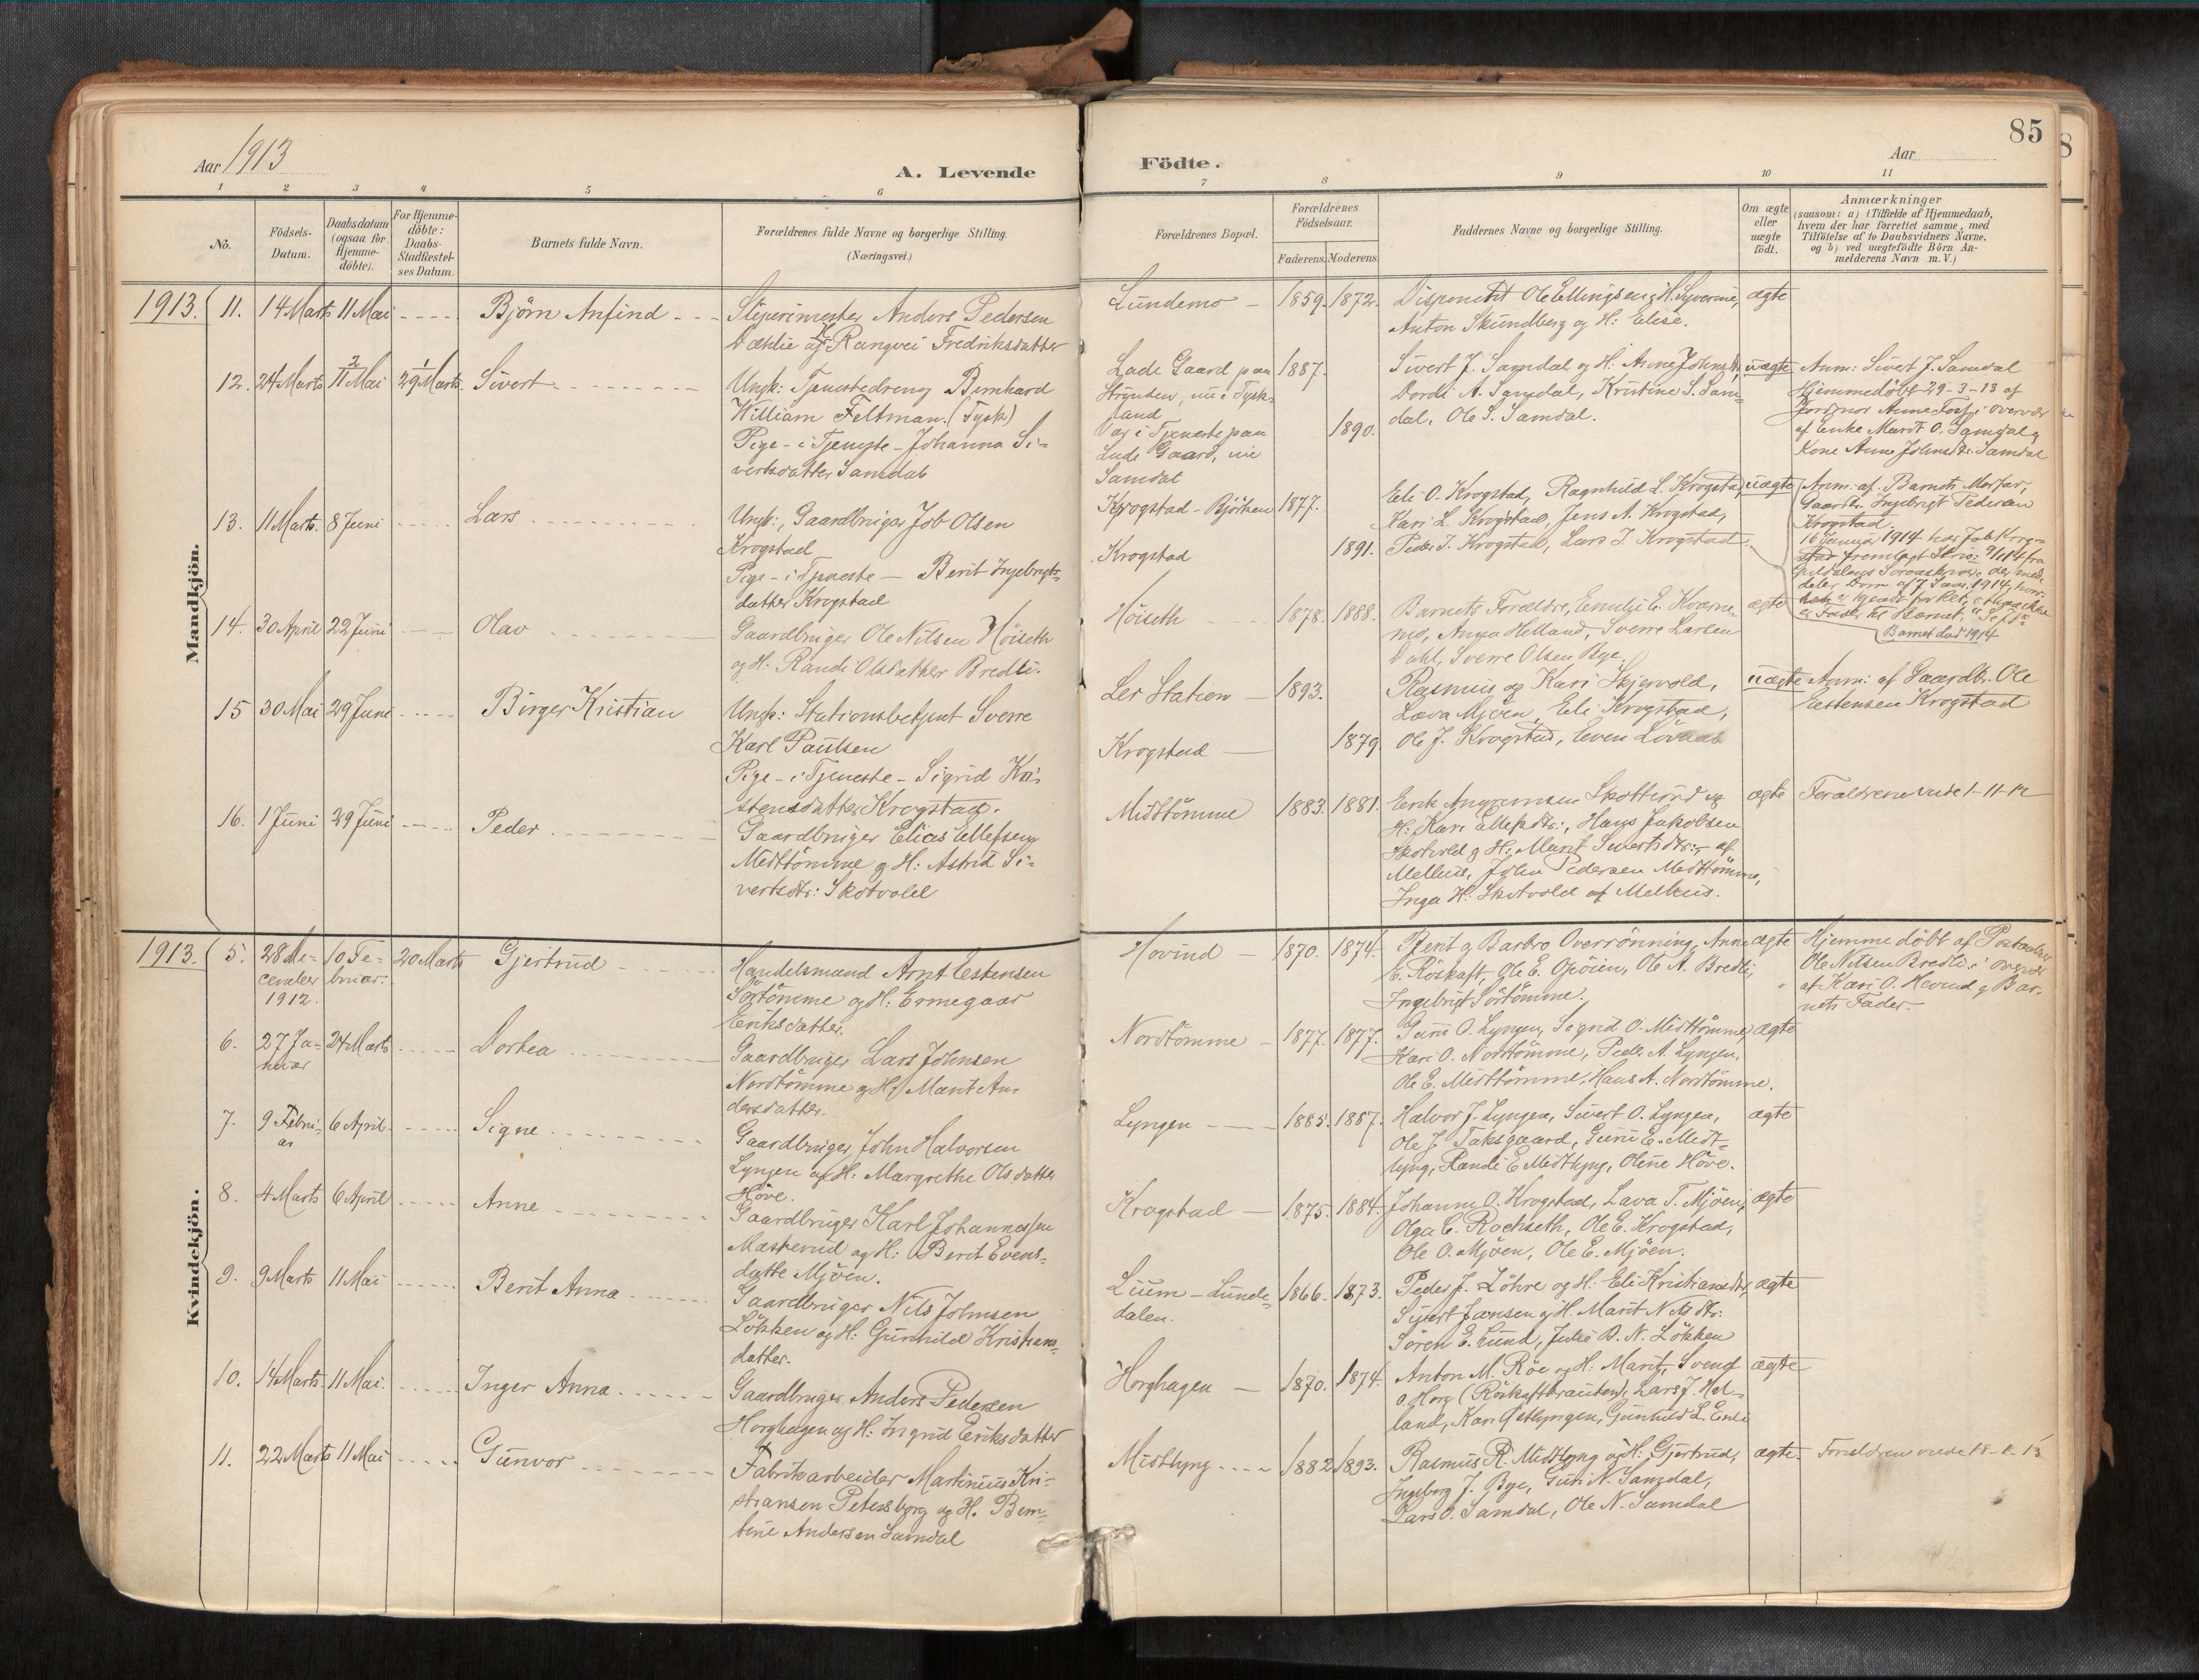 85
Aar 1913
A. Levende
Födte.
Aar
1 2 3 4 5 6 7 8 9 10 11
No.
Födsels-
Datum.
Daabsdatum
(ogsaa for
Hjemme-
döbte).
For Hjemme-
döbte:
Daabs-
Stadfæstel-
ses Datum.
Barnets fulde Navn.
Forældrenes fulde Navne og borgerlige Stilling
(Næringsvei.)
Forældrenes Bopæl.
Forældrenes
Födselsaar.
Faderens. Moderens.
Faddernes Navne og borgerlige Stilling.
Om ægte
eller
uægte
födt.
Anmærkninger
(saasom: a) i Tilfælde af Hjemmedaab,
hvem der har forrettet samme, med
Tilföielse af to Daabsvidners Navne,
og b) ved uægtefödte Börn An-
melderens Navn m. V.)
Mandkjön.
1913. 11. 14 Marts 11 Mai
Björn Anfind
Sliperimester Anders Pedersen
Dæhlie og H: Rangvei Fredriksdatter
Lundemo 1859. 1872.
Disponent Ole Ellingsen g H. Syverine,
Anton Skundberg og H: Elise.
ægte
12. 24 Marts 2/11 Mai 1/29 Marts
Sivert
Ungk: Tjenestedreng Bernhard
William Feltman. (Tysk)
Pige - i Tjeneste - Johanna Si-
vertsdatter Samdal
Lade Gaard paa
Strinden, nu i Tysk-
land
og i Tjeneste paa
Lade Gaard, nu
Samdal
1887.
1890.
Sivert J. Samdal og H. Anne Johnsdt,
Dordi A. Samdal, Kristine S. Sam-
dal, Ole S. Samdal.
uægte
Anm: Sivert J. Samdal
Hjemmedöbt 29-3-13 af
Jordmor Anne Foss i Overvær
af Enke Marit O. Samdal g
Kone Anne Johnsdtr. Samdal
13. 11 Marts. 8 Juni
Lars
Ungk:, Gaardbruger Job Olsen
Krogstad
Pige - i Tjeneste - Berit Ingebrigts-
datter Krogstad
Krogstad - Björken 1877.
Krogstad 1891.
Eli O. Krogstad, Ragnhild L. Krogstad,
Kari L. Krogstad, Jens A. Krogstad,
Peder J. Krogstad, Lars I Krogstad.
uægte
Anm: af Barnets Morfar,
Gaardbr. Ingebrigt Pedersen
Krogstad.
16 Januar 1914 har Job Krog-
stad fremlagt Skriv: 9/1 14 fra
Guldalens Sorenskriver, der med-
deler Dom af 7 Jan. 1914, hvor-
ved er kjendt for Ret, at han ikke
er Fader til Barnet.
Barnet död 1914
14. 30 April 22 Juni
Olav
Gaardbruger Ole Nilsen Höiseth
og H: Randi Olsdatter Bredli.
Höiseth 1878. 1888.
Barnets Forældre, Emilie E. Kværn-
mo, Anna Helland, Sverre Larsen
Dahl, Sverre Olsen Bye.
ægte
15 30 Mai 29 Juni
Birger Kristian
Ungk: Stationsbetjent Sverre
Karl Paulsen
Pige - i Tjeneste - Sigrid Kri-
stensdatter Krogstad.
Ler Station 1893.
Krogstad 1879.
Rasmus og Kari Skjervold,
Lava Mjöen, Eli Krogstad,
Ole J. Krogstad, Even Lövaas
uægte
Anm: af Gaardbr. Ole
Estensen Krogstad
16. 1 Juni 29 Juni
Peder
Gaardbruger Elias Ellefsen
Midttömme g H: Astrid Si-
vertsdtr: Skotvold
Midttömme 1883. 1881.
Erik Angrimsen Skotterud og
H: Kari Ellefsdtr:, Hans Jakobsen
Skotvold g H: Marit Sivertsdtr:, af
Melhus, John Pedersen Midttömme,
Inga H. Skotvold af Melhus.
ægte
Forældrene viede 1-11-12
Kvindekjön.
1913. 5. 28 De-
cember
1912.
10 Fe-
bruar:
20 Marts
Gjertrud
Handelsmand Arnt Estensen
Sörtömme og H: Ermegaar
Eriksdatter.
Hovind 1870. 1874.
Berit g Barbro Overrönning, Anne
E. Röskaft, Ole E. Opöien, Ole A. Bredli,
Ingebrigt Sörtömme.
ægte
Hjemmedöbt af
Ole Nilsen Bredli i Overvær
af Kari O. Hovind g Bar-
nets Fader.
6. 27 Ja-
nuar
24 Marts
Dortea
Gaardbruger Lars Johnsen
Nordtömme g H: Marit An-
dersdatter.
Nordtömme 1877. 1877.
Guru O. Lyngen, Sigrid O. Midttömme,
Kari O. Nordtömme, Peder A. Lyngen,
Ole E. Midttömme, Hans A. Nordtömme.
ægte
7. 9 Febru-
ar
6 April
Signe
Gaardbruger John Halvorsen
Lyngen og H: Margrethe Olsdatter
Höve.
Lyngen 1885. 1887.
Halvor J. Lyngen, Sivert O. Lyngen,
Ole J. Taksgaard, Guru E. Midt-
lyng, Randi E Midtlyng, Oline Höve.
ægte
8. 4 Marts 6 April
Anne
Gaardbruger Karl Johannessen
Mæskerud og H: Berit Evens-
datte Mjöen.
Krogstad 1875. 1884.
Johanne O. Krogstad, Lava T. Mjöen,
Olga E. Rochseth, Ole E. Krogstad,
Ole O. Mjöen, Ole E. Mjöen.
ægte
9. 9 Marts 11 Mai
Berit Anna
Gaardbruger Nils Johnsen
Lökken og H: Gunhild Kristians-
datter.
Lium - Lunde-
dalen.
1866. 1873.
Peder J. Löhre og H: Eli Kristiansdtr,
Sivert Jansen g H. Marit Nilsdtr:
Sören E. Lund, Julie B. N. Lökken
ægte
10. 14 Marts. 11 Mai.
Inger Anna
Gaardbruger Anders Pedersen
Horghagen og H: Ingrid Eriksdatter
Horghagen 1870. 1874.
Anton M. Röe og H: Marit, Svend
O. Horg (Röskaftbrauten), Lars J. Hel-
land, Kari Östlyngen, Gunhild L.
ægte
11. 22 Marts 11 Mai
Gunvor
Fabriksarbeider Martinius Kri-
stiansen Petersborg og H. Bern-
tine Andersen Samdal
Midtlyng 1882 1893.
Rasmus R. Midtlyng og H: Gjertrud,
Ingeborg J. Bye, Guri N. Samdal,
Lars O. Samdal, Ole N. Samdal
ægte.
Forældrene viede 18-1-13